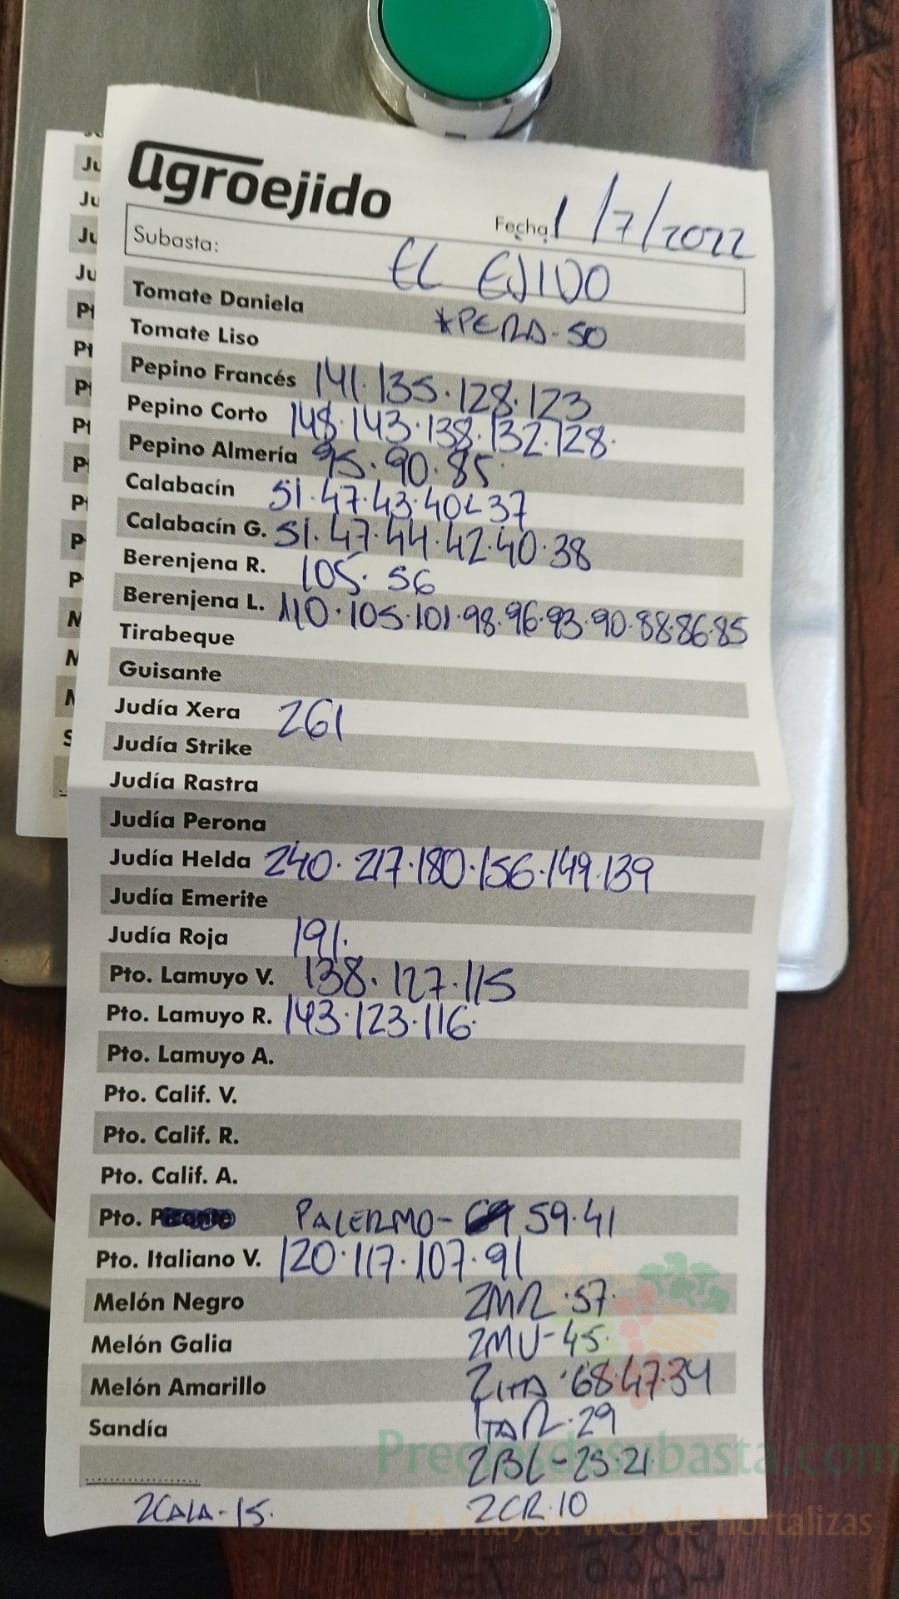 agroejido
Fecha 1/7/2022
Subasta: EL EJIDO
Tomate Daniela
*PERA-50
Tomate Liso
Pepino Francés 141.135.128.123
Pepino Corto 148.143.138.132.128.
Pepino Almería 95.90.85
Calabacín 51.47.43.40-37
Calabacín G. 51.47.44.42.40.38
Berenjena R. 105.56
Berenjena L. 110.105.101.98.96.93.90.88.86.85
Tirabeque
Guisante
Judía Xera 261
Judía Strike
Judía Rastra
Judía Perona
Judía Helda 240.217.180.156.149.139
Judía Emerite
Judía Roja 191.
Pto. Lamuyo V. 138.127.115
Pto. Lamuyo R. 143.123.116.
Pto. Lamuyo A.
Pto. Calif. V.
Pto. Calif. R.
Pto. Calif. A.
Pto. PALERMO- 59.41
Pto. Italiano V. 120.117.107.91
Melón Negro ZMR.57.
Melón Galia ZMV-45.
Melón Amarillo 68.47.34
Sandía 29
ZBL-25.21
ZCR.10
Preciosdesubasta.com
La mayor web de hortalizas